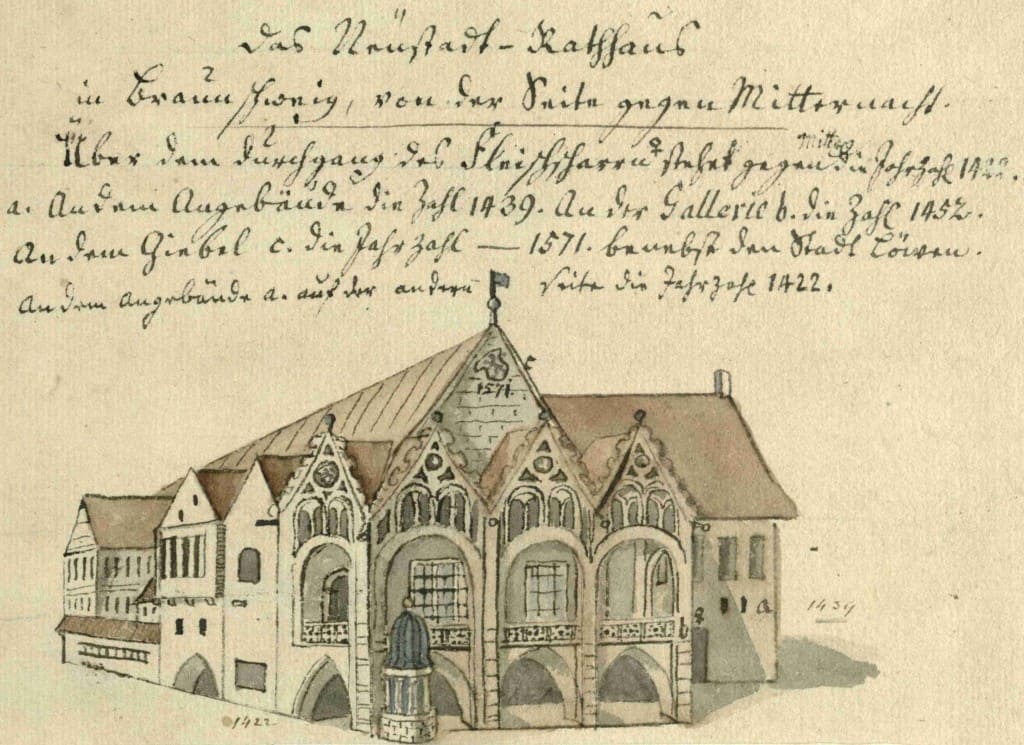 Das Neüstadt-Rathhaus
in Braunschweig, von der Seite gegen Mitternacht.
Mittag
Über dem Durchgang des Fleischscharrn stehet gegen die Jahrzahl 1422.
a. An dem Angebäude die Zahl 1439. An der Gallerie b. die Zahl 1452.
An dem Giebel c. die Jahrzahl — 1571. benebst den Stadt Löwen.
An dem Angebäude a. auf der andern Seite die Jahrzahl 1422.
c
1571.
b
a
1439
1422